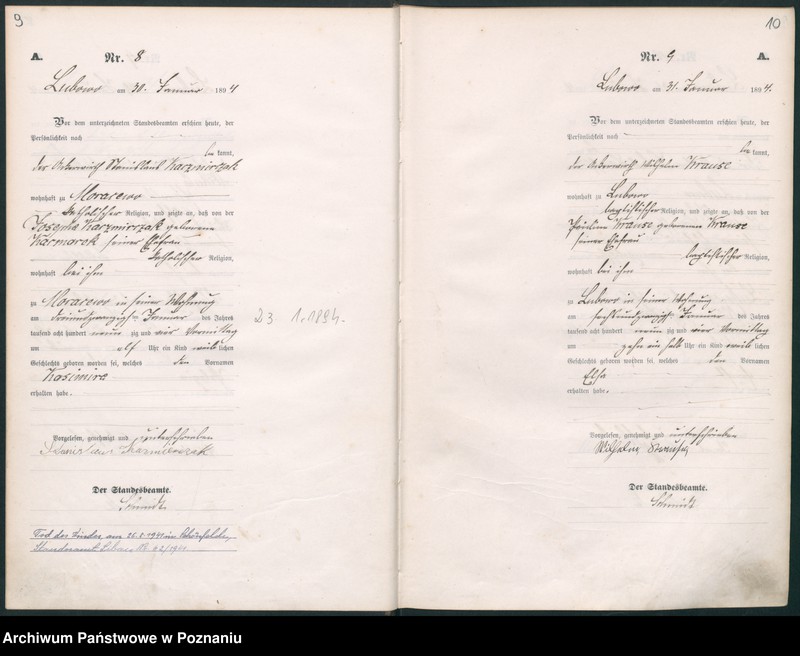 9
A.
Nr. 8
Lubowo am 30. Januar 1894
Vor dem unterzeichneten Standesbeamten erschien heute, der
Persönlichkeit nach
be kannt,
der Ackerwirth Stanislaus Kazmierczak
wohnhaft zu Moraczewo
katholischer Religion, und zeigte an, daß von der
Josepha Kazmierczak geborene
Karmarek seiner Ehefrau
katholischer Religion,
wohnhaft bei ihm
zu Moraczewo in seiner Wohnung
am dreiundzwanzigsten Januar des Jahres
tausend acht hundert neun zig und vier Vormittag
um elf Uhr ein Kind weib lichen
Geschlechts geboren worden sei, welches den Vornamen
Kasimira
erhalten habe.
Vorgelesen, genehmigt und unterschrieben
Kazmierczak
Der Standesbeamte.
Schmidt
Tod des Kindes am 26.5.1941 in
Standesamt
23 1.1894.
10
Nr. 9
A.
Lubowo am 31. Januar 1894.
Vor dem unterzeichneten Standesbeamten erschien heute, der
Persönlichkeit nach
be kannt,
der Ackerwirth Wilhelm Krause
wohnhaft zu Lubowo
baptistischer Religion, und zeigte an, daß von der
Pauline Krause geborenen Krause
seiner Ehefrau
baptistischer Religion,
wohnhaft bei ihm
zu Lubowo in seiner Wohnung
am sechsundzwanzigsten Januar des Jahres
tausend acht hundert neun zig und vier Vormittag
um zehn ein halb Uhr ein Kind weib lichen
Geschlechts geboren worden sei, welches den Vornamen
Elsa
erhalten habe.
Vorgelesen, genehmigt und unterschrieben
Wilhelm Krause
Der Standesbeamte.
Schmidt
Archiwum Państwowe w Poznaniu